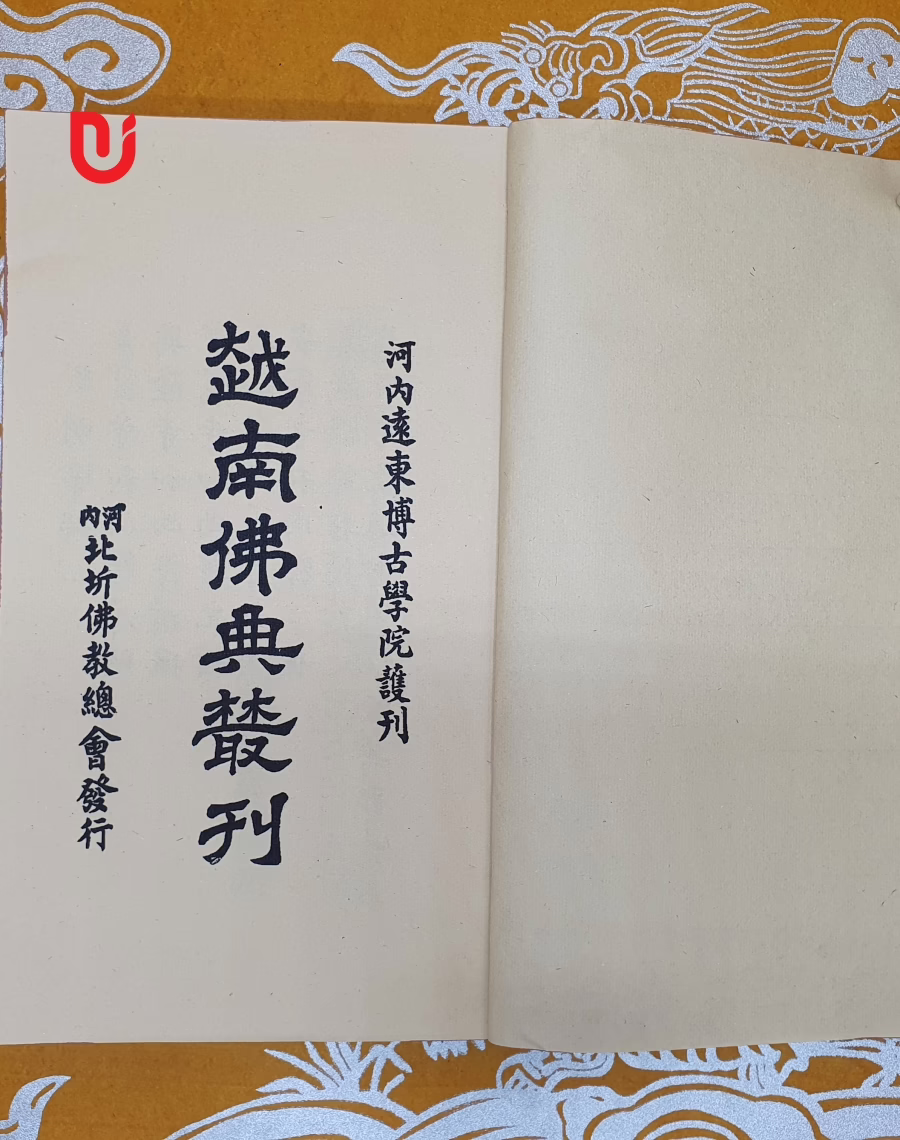 河內遠東博古學院護刊
越南佛典叢刊
河內北圻佛教總會發行